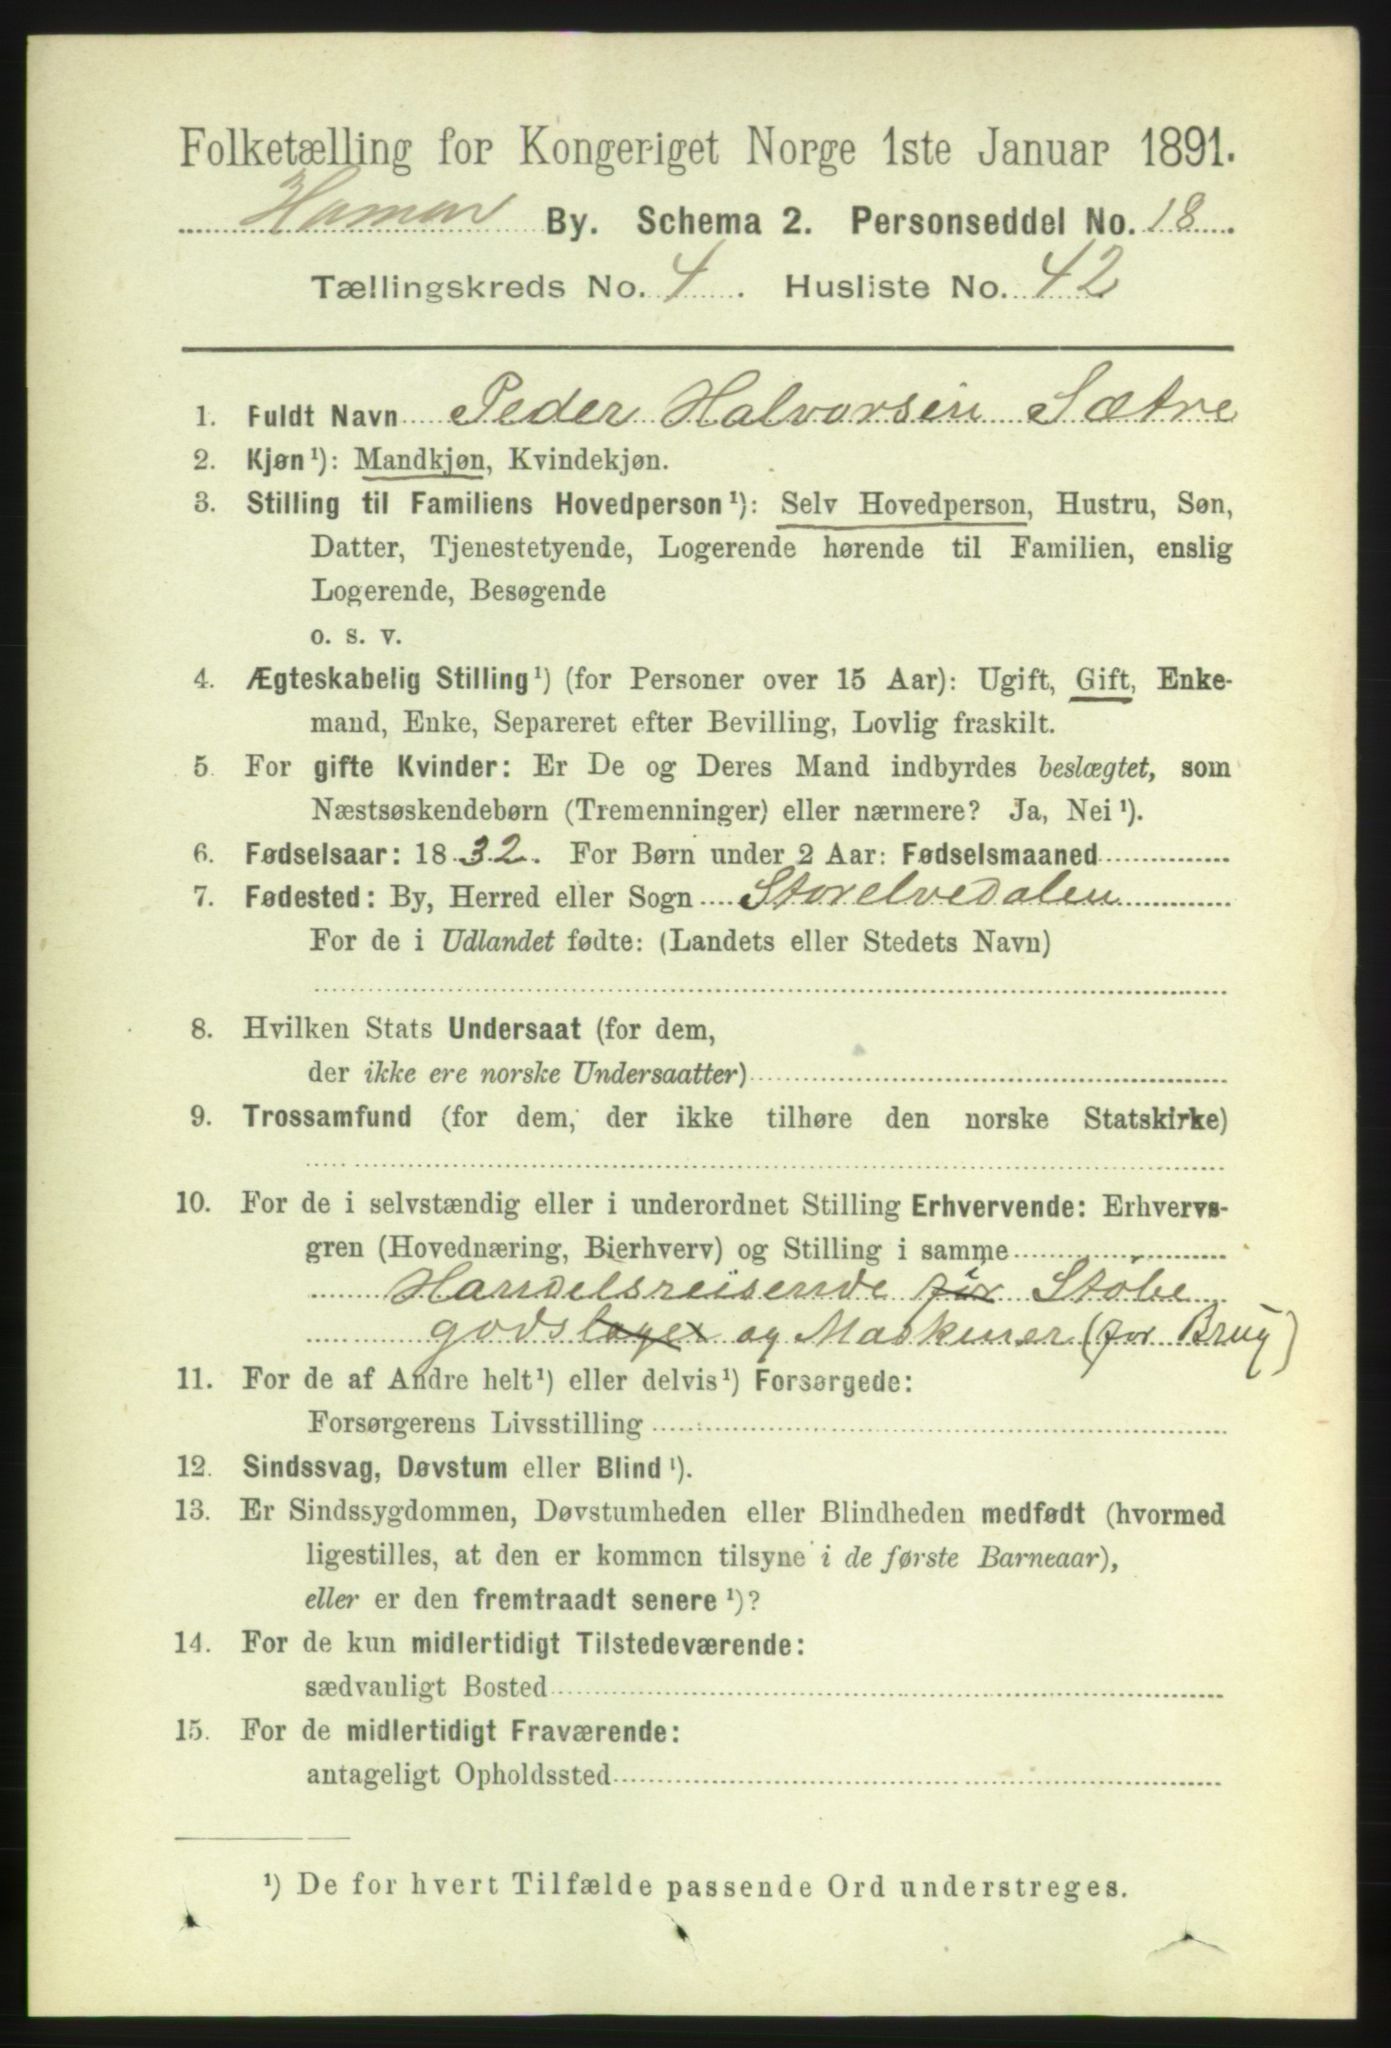 Folketælling for Kongeriget Norge 1ste Januar 1891.
Hamar By. Schema 2. Personseddel No. 18.
Tællingskreds No. 4. Husliste No. 42
1. Fuldt Navn Peder Halvorsen Sætre
2. Kjøn ¹): Mandkjøn, Kvindekjøn.
3. Stilling til Familiens Hovedperson ¹): Selv Hovedperson, Hustru, Søn,
Datter, Tjenestetyende, Logerende hørende til Familien, enslig
Logerende, Besøgende
o. s. v.
4. Ægteskabelig Stilling ¹) (for Personer over 15 Aar): Ugift, Gift, Enke-
mand, Enke, Separeret efter Bevilling, Lovlig fraskilt.
5. For gifte Kvinder: Er De og Deres Mand indbyrdes beslægtet, som
Næstsøskendebørn (Tremenninger) eller nærmere? Ja, Nei ¹).
6. Fødselsaar: 1832. For Børn under 2 Aar: Fødselsmaaned
7. Fødested: By, Herred eller Sogn Storelvedalen
For de i Udlandet fødte: (Landets eller Stedets Navn)
8. Hvilken Stats Undersaat (for dem,
der ikke ere norske Undersaatter)
9. Trossamfund (for dem, der ikke tilhøre den norske Statskirke)
10. For de i selvstændig eller i underordnet Stilling Erhvervende: Erhvervs-
gren (Hovednæring, Bierhverv) og Stilling i samme
Handelsreisende for i Støbe
godslager og Maskiner (for Brug)
11. For de af Andre helt ¹) eller delvis ¹) Forsørgede:
Forsørgerens Livsstilling
12. Sindssvag, Døvstum eller Blind ¹).
13. Er Sindssygdommen, Døvstumheden eller Blindheden medfødt (hvormed
ligestilles, at den er kommen tilsyne i de første Barneaar),
eller er den fremtraadt senere ¹)?
14. For de kun midlertidigt Tilstedeværende:
sædvanligt Bosted
15. For de midlertidigt Fraværende:
antageligt Opholdssted
¹) De for hvert Tilfælde passende Ord understreges.